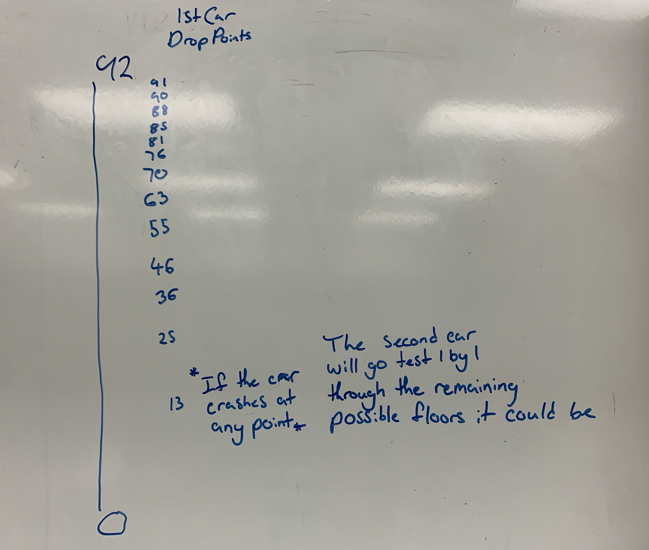 1st Car
Drop Points
92
91
90
88
85
81
76
70
63
55
46
36
25
13
0
*If the car
crashes at
any point*
The second car
will go test 1 by 1
through the remaining
possible floors it could be